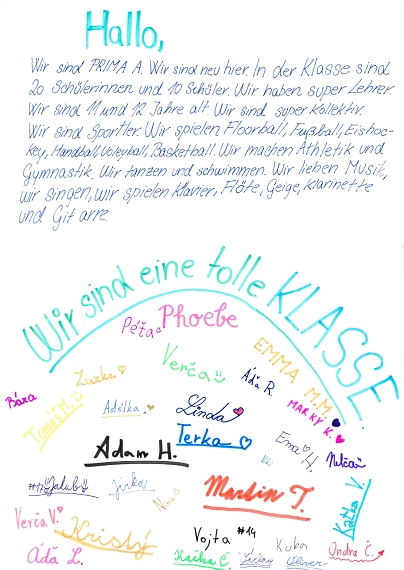 Hallo,
Wir sind PRIMA A. Wir sind neu hier. In der Klasse sind
20 Schülerinnen und 10 Schüler. Wir haben super Lehrer.
Wir sind 11 und 12 Jahre alt. Wir sind super Kollektiv.
Wir sind Sportler. Wir spielen Floorball, Fußball, Eishoc-
key, Handball, Volleyball, Basketball. Wir machen Athletik und
Gymnastik. Wir tanzen und schwimmen. Wir lieben Musik,
wir singen, wir spielen Klavier, Flöte, Geige, Klarinette
und Gitarre.
Wir sind eine tolle KLASSE.
Phoebe
Péťa
Verča
EMMA M.M.
Zuzka.
Áďa R.
Bára
Tomáš M.
Adélka.
Linda
MARKÝ K.
Terka
Adam H.
Ema H.
Viki
#17 Jakub
Jirka
Nina
Martin T.
Katka V.
Verča V.
Kristý
Vojta #14
Kuba
Ondra Č.
Áďa L.
Oliver